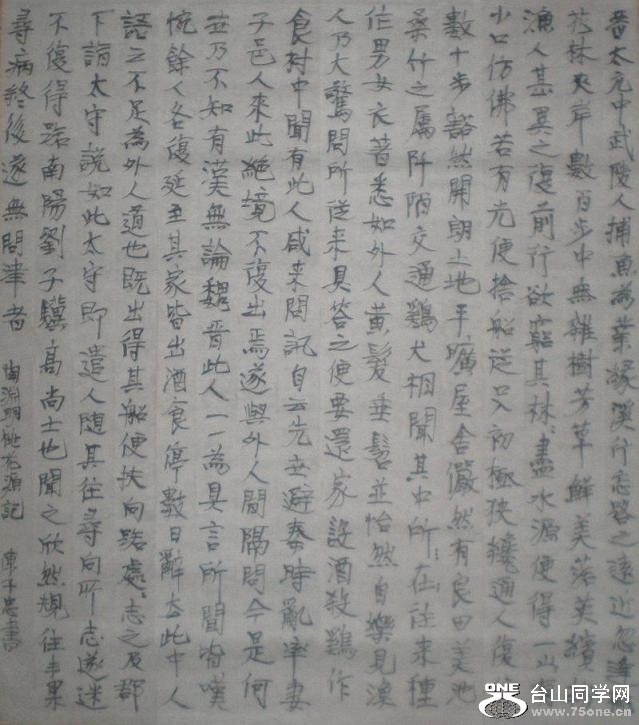 晉太元中武陵人捕魚為業緣溪行忘路之遠近忽逢
花林夾岸數百步中無雜樹芳草鮮美落英繽
漁人甚異之復前行欲窮其林林盡水源便得一山
小口仿佛若有光便捨船從口入初極狹纔通人復
數十步豁然開朗土地平曠屋舍儼然有良田美池
桑竹之屬阡陌交通鷄犬相聞其中所在往来種
作男女衣著悉如外人黃髮垂髫並怡然自樂見漁
人乃大驚問所從来具答之便要還家設酒殺鷄作
食村中聞有此人咸来問訊自云先世避秦時亂率妻
子邑人來此絕境不復出焉遂與外人間隔問今是何
世乃不知有漢無論魏晉此人一一為具言所聞皆嘆
惋餘人各復延至其家皆出酒食停數日辭去此中人
語云不足為外人道也既出得其船便扶向路處處志之及郡
下詣太守說如此太守即遣人隨其往尋向所志遂迷
不復得路南陽劉子驥高尚士也聞之欣然規往未果
尋病終後遂無問津者
陶淵明桃花源記
書
ONE
台山同学网
www.75one.cn